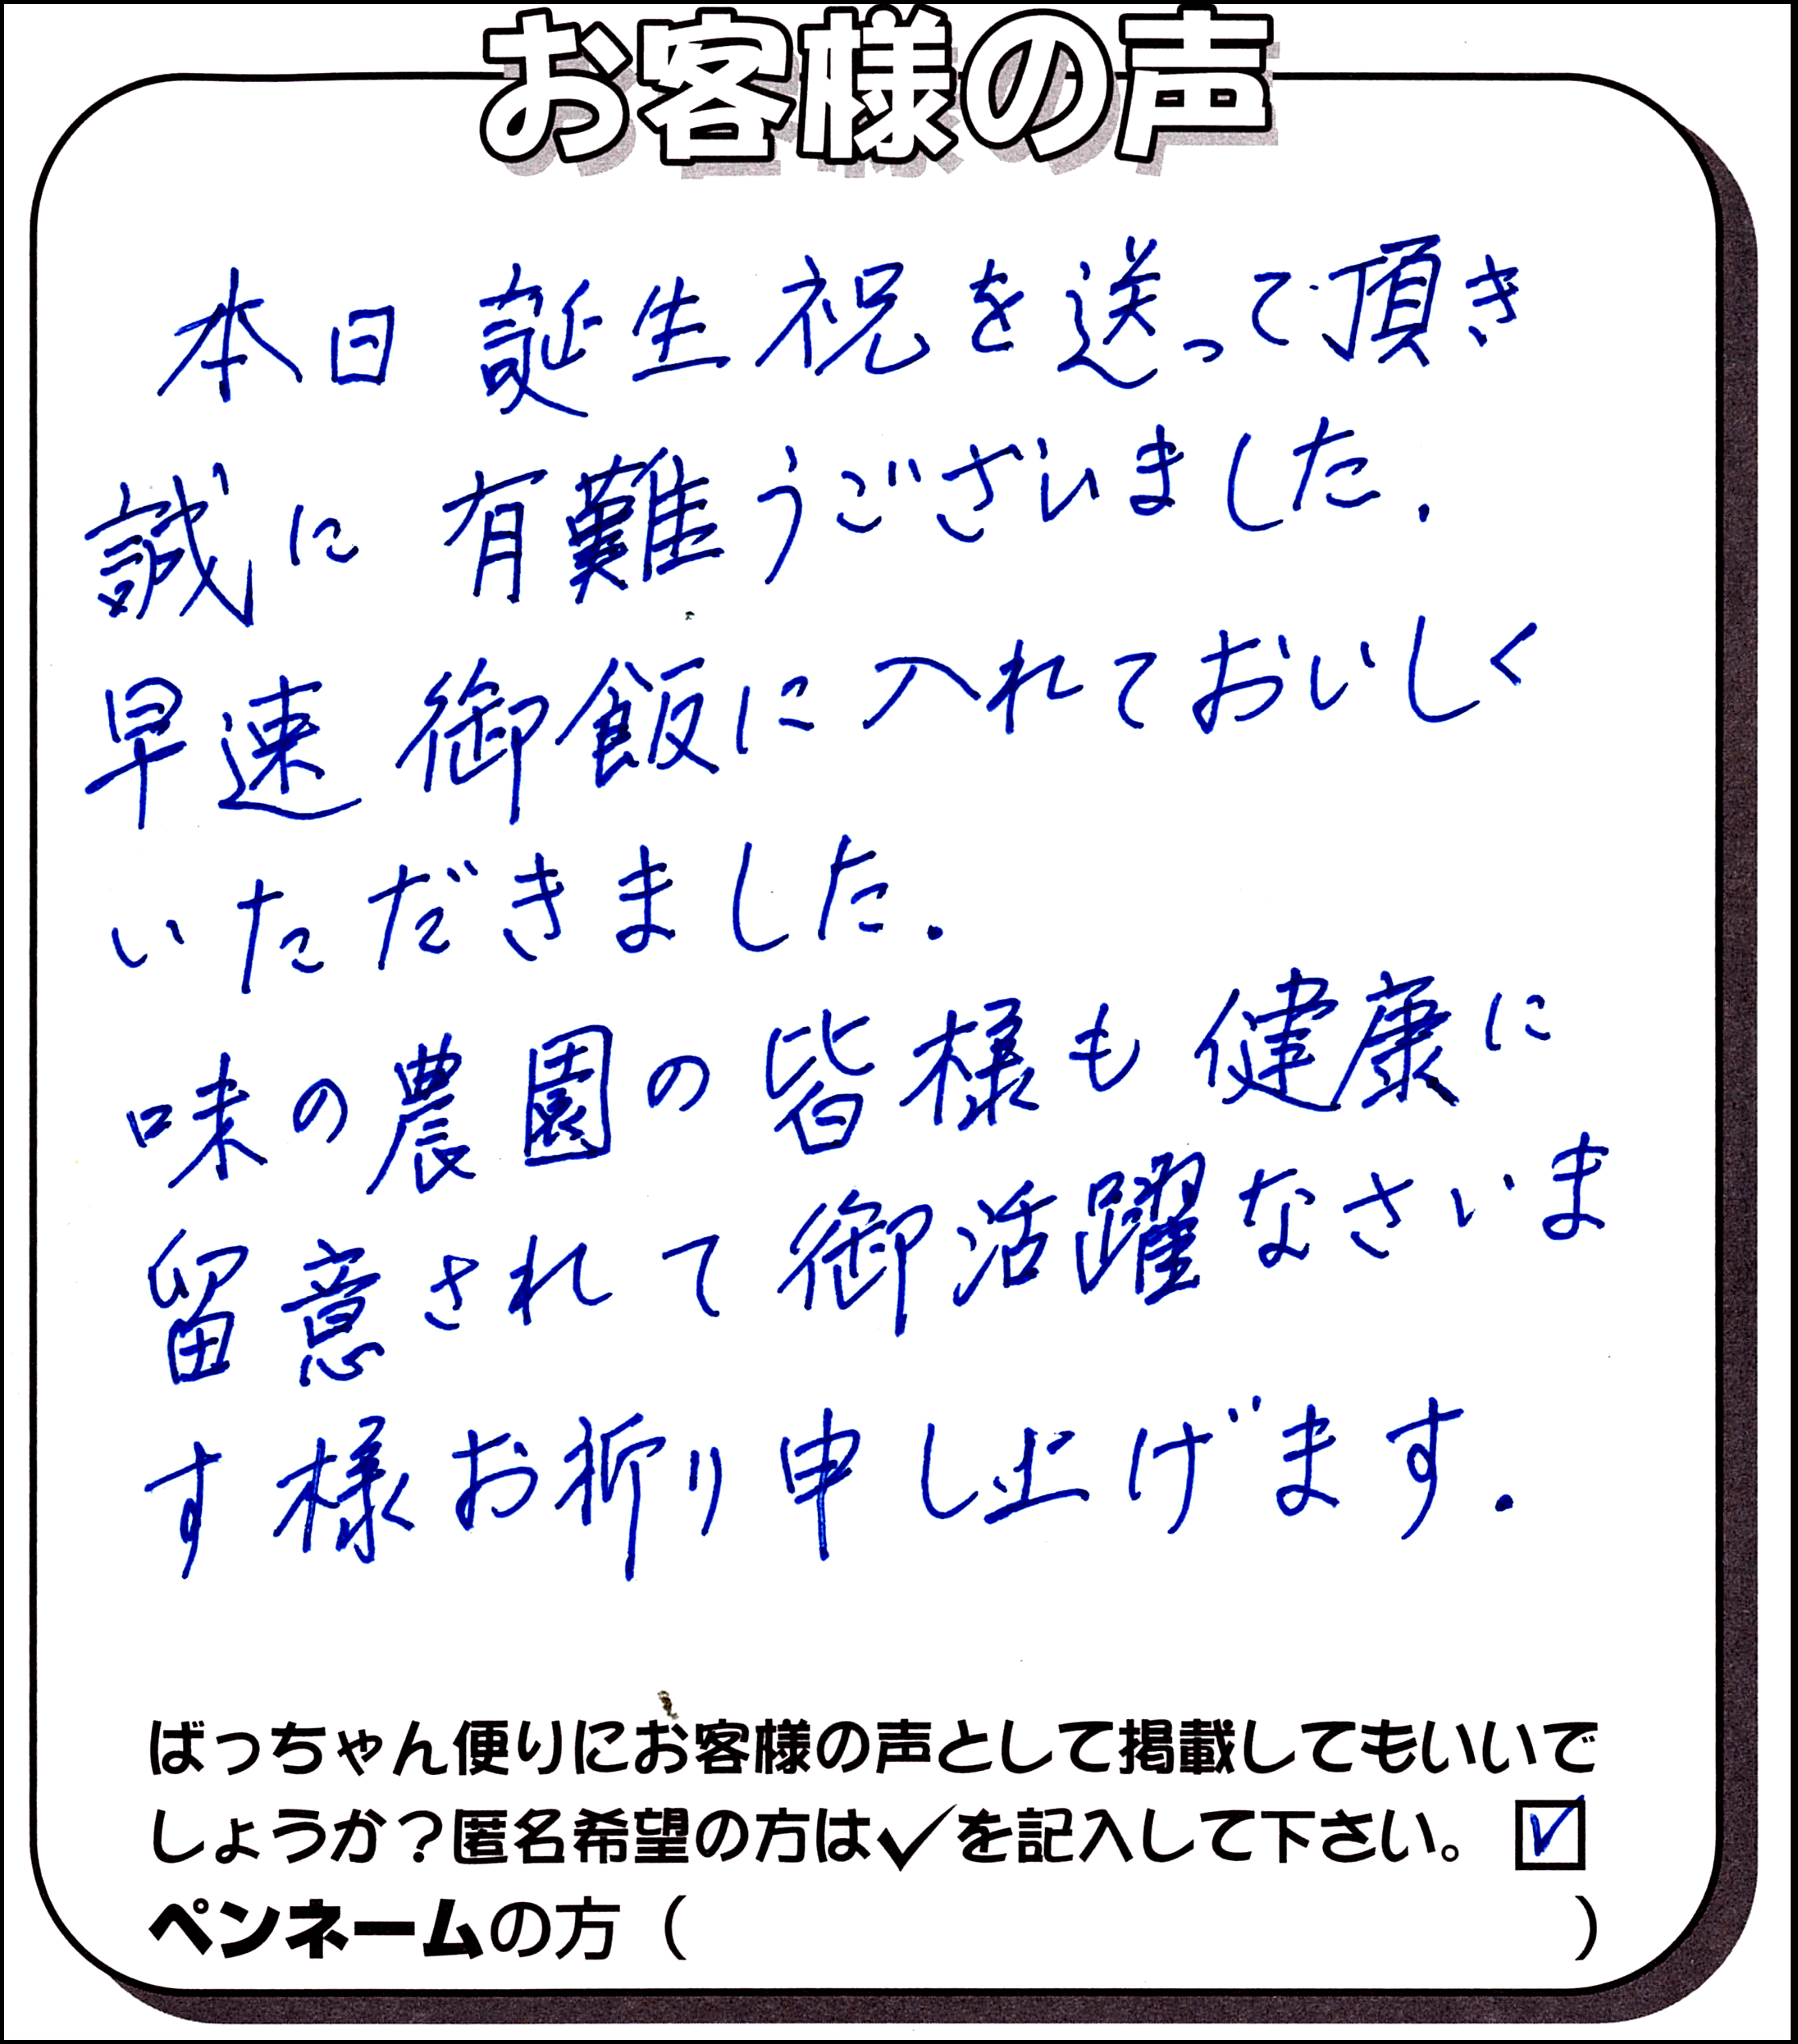 お客様の声
本日誕生祝を送って頂き
誠に有難うございました.
早速御飯に入れておいしく
いただきました.
味の農園の皆様も健康に
留意されて御活躍なさいま
す様お祈り申し上げます.
ばっちゃん便りにお客様の声として掲載してもいいで
しょうか？匿名希望の方は✓を記入して下さい。☑
ペンネームの方（　　　　　　　）